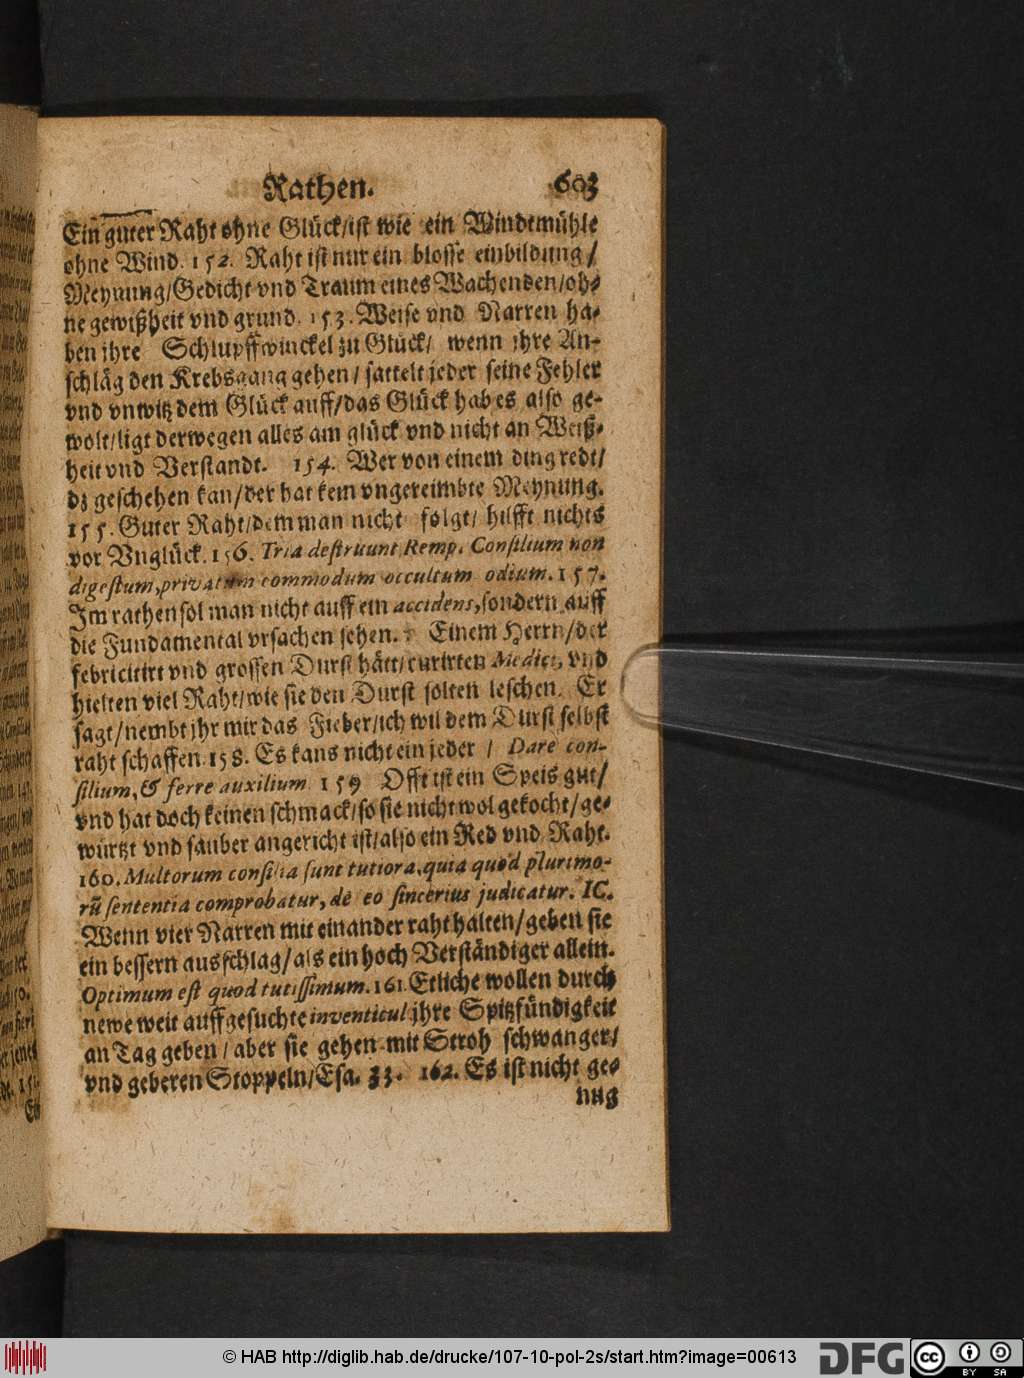 Rathen. 603
Ein guter Raht ohne Glück/ist wie ein Windtmühle
ohne Wind. 152. Raht ist nur ein blosse einbildung/
Meynung/Gedicht vnd Traum eines Wachenden/oh-
ne gewißheit vnd grund. 153. Weise vnd Narren ha-
ben jhre Schlupffwinckel zu Glück/ wenn jhre An-
schläg den Krebsgang gehen/ sattelt jeder seine Fehler
vnd vnwitz dem Glück auff/das Glück hab es also ge-
wolt/ligt derwegen alles am glück vnd nicht an Weiß-
heit vnd Verstandt. 154. Wer von einem ding redt/
dz geschehen kan/der hat kein vngereimbte Meynung.
155. Guter Raht/dem man nicht folgt/ hilfft nichts
vor Vnglück. 156. Tria destruunt Remp. Consilium non
digestum, privatum commodum occultum odium. 157.
Im rathen sol man nicht auff ein accidens, sondern auff
die Fundamental vrsachen sehen. Einem Herrn/der
febricitirt vnd grossen Durst hätt/curirten Medici, vnd
hielten viel Raht/wie sie den Durst solten leschen. Er
sagt/nembt jhr mir das Fieber/ich wil dem Durst selbst
raht schaffen. 158. Es kans nicht ein jeder / Dare con-
silium, & ferre auxilium. 159 Offt ist ein Speis gut/
vnd hat doch keinen schmack/so sie nicht wol gekocht/ge-
würtzt vnd sauber angericht ist/also ein Red vnd Raht.
160. Multorum consilia sunt tutiora, quia quod plurimo-
rũ sententia comprobatur, de eo sincerius judicatur. IC.
Wenn vier Narren mit einander raht halten/geben sie
ein bessern ausschlag/als ein hoch Verständiger allein.
Optimum est quod tutissimum. 161. Etliche wollen durch
newe weit auffgesuchte inventicul jhre Spitzfündigkeit
an Tag geben/ aber sie gehen mit Stroh schwanger/
vnd geberen Stoppeln/Esa. 33. 162. Es ist nicht ge-
nug
© HAB http://diglib.hab.de/drucke/107-10-pol-2s/start.htm?image=00613
DFG
cc BY SA